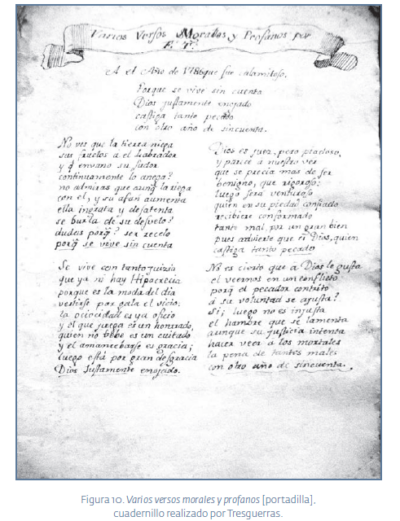 Varios Versos Morales y Profanos por
F. T.
A el Año de 1786 que fue calamitoso.
Porque se vive sin cuenta
Dios justamente enojado
castiga tanto pecado
con otro año de cincuenta.
No ves que la tierra niega
sus frutos a el Labrador
y q̃ envano su sudor
continuamente lo anega?
no admiras que aunq̃ la riega
con el, y su afan aumenta
ella ingrata y desatenta
se burla de su desvelo?
dudas porq̃? ser recelo
porq̃ se vive sin cuenta
Se vive con tanto juizio
que ya ni hay Hipocrecia
porque es la moda del dia
vestirse por gala el vicio:
la ociosidad es ya oficio
y el que juega es un honrado,
quien no bebe es un cuitado
y el amancebarse es gracia;
luego está por gran desgracia
Dios Justamente enojado.
Dios es juez, pero piadoso,
y parece a nuestro ver
que se precia mas de ser
benigno, que rigoroso;
luego será venturoso
quien en su piedad confiado
recibiere conformado
tanto mal por un gran bien
pues advierte que es Dios, quien
castiga tanto pecado.
No es cierto que a Dios le gusta
el vernos en un conflicto
porq̃ el pecador contrito
á su voluntad se ajusta?
Si; luego no es injusta
el hambre que se lamenta
aunque su justicia intenta
hacer veer á los mortales
la pena de tantos males
con otro año de cincuenta.
Figura 10. Varios versos morales y profanos [portadilla],
cuadernillo realizado por Tresguerras.